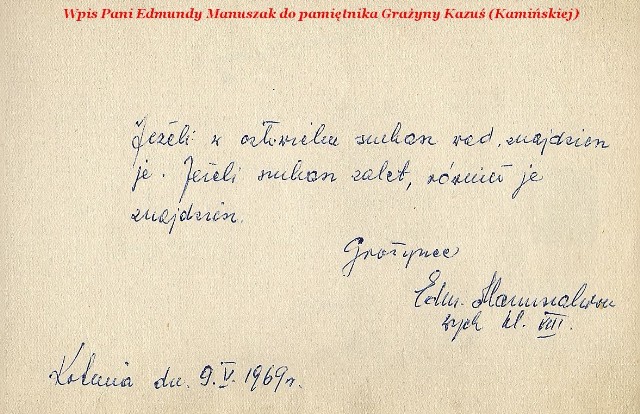 Wpis Pani Edmundy Manuszak do pamiętnika Grażyny Kazuś (Kamińskiej)
Jeżeli w człowieku szukasz wad, znajdziesz
je. Jeżeli szukasz zalet, również je
znajdziesz.
Grażynce
Edm. Manuszakowa
wych kl. VIII.
dn. 9.V.1969r.